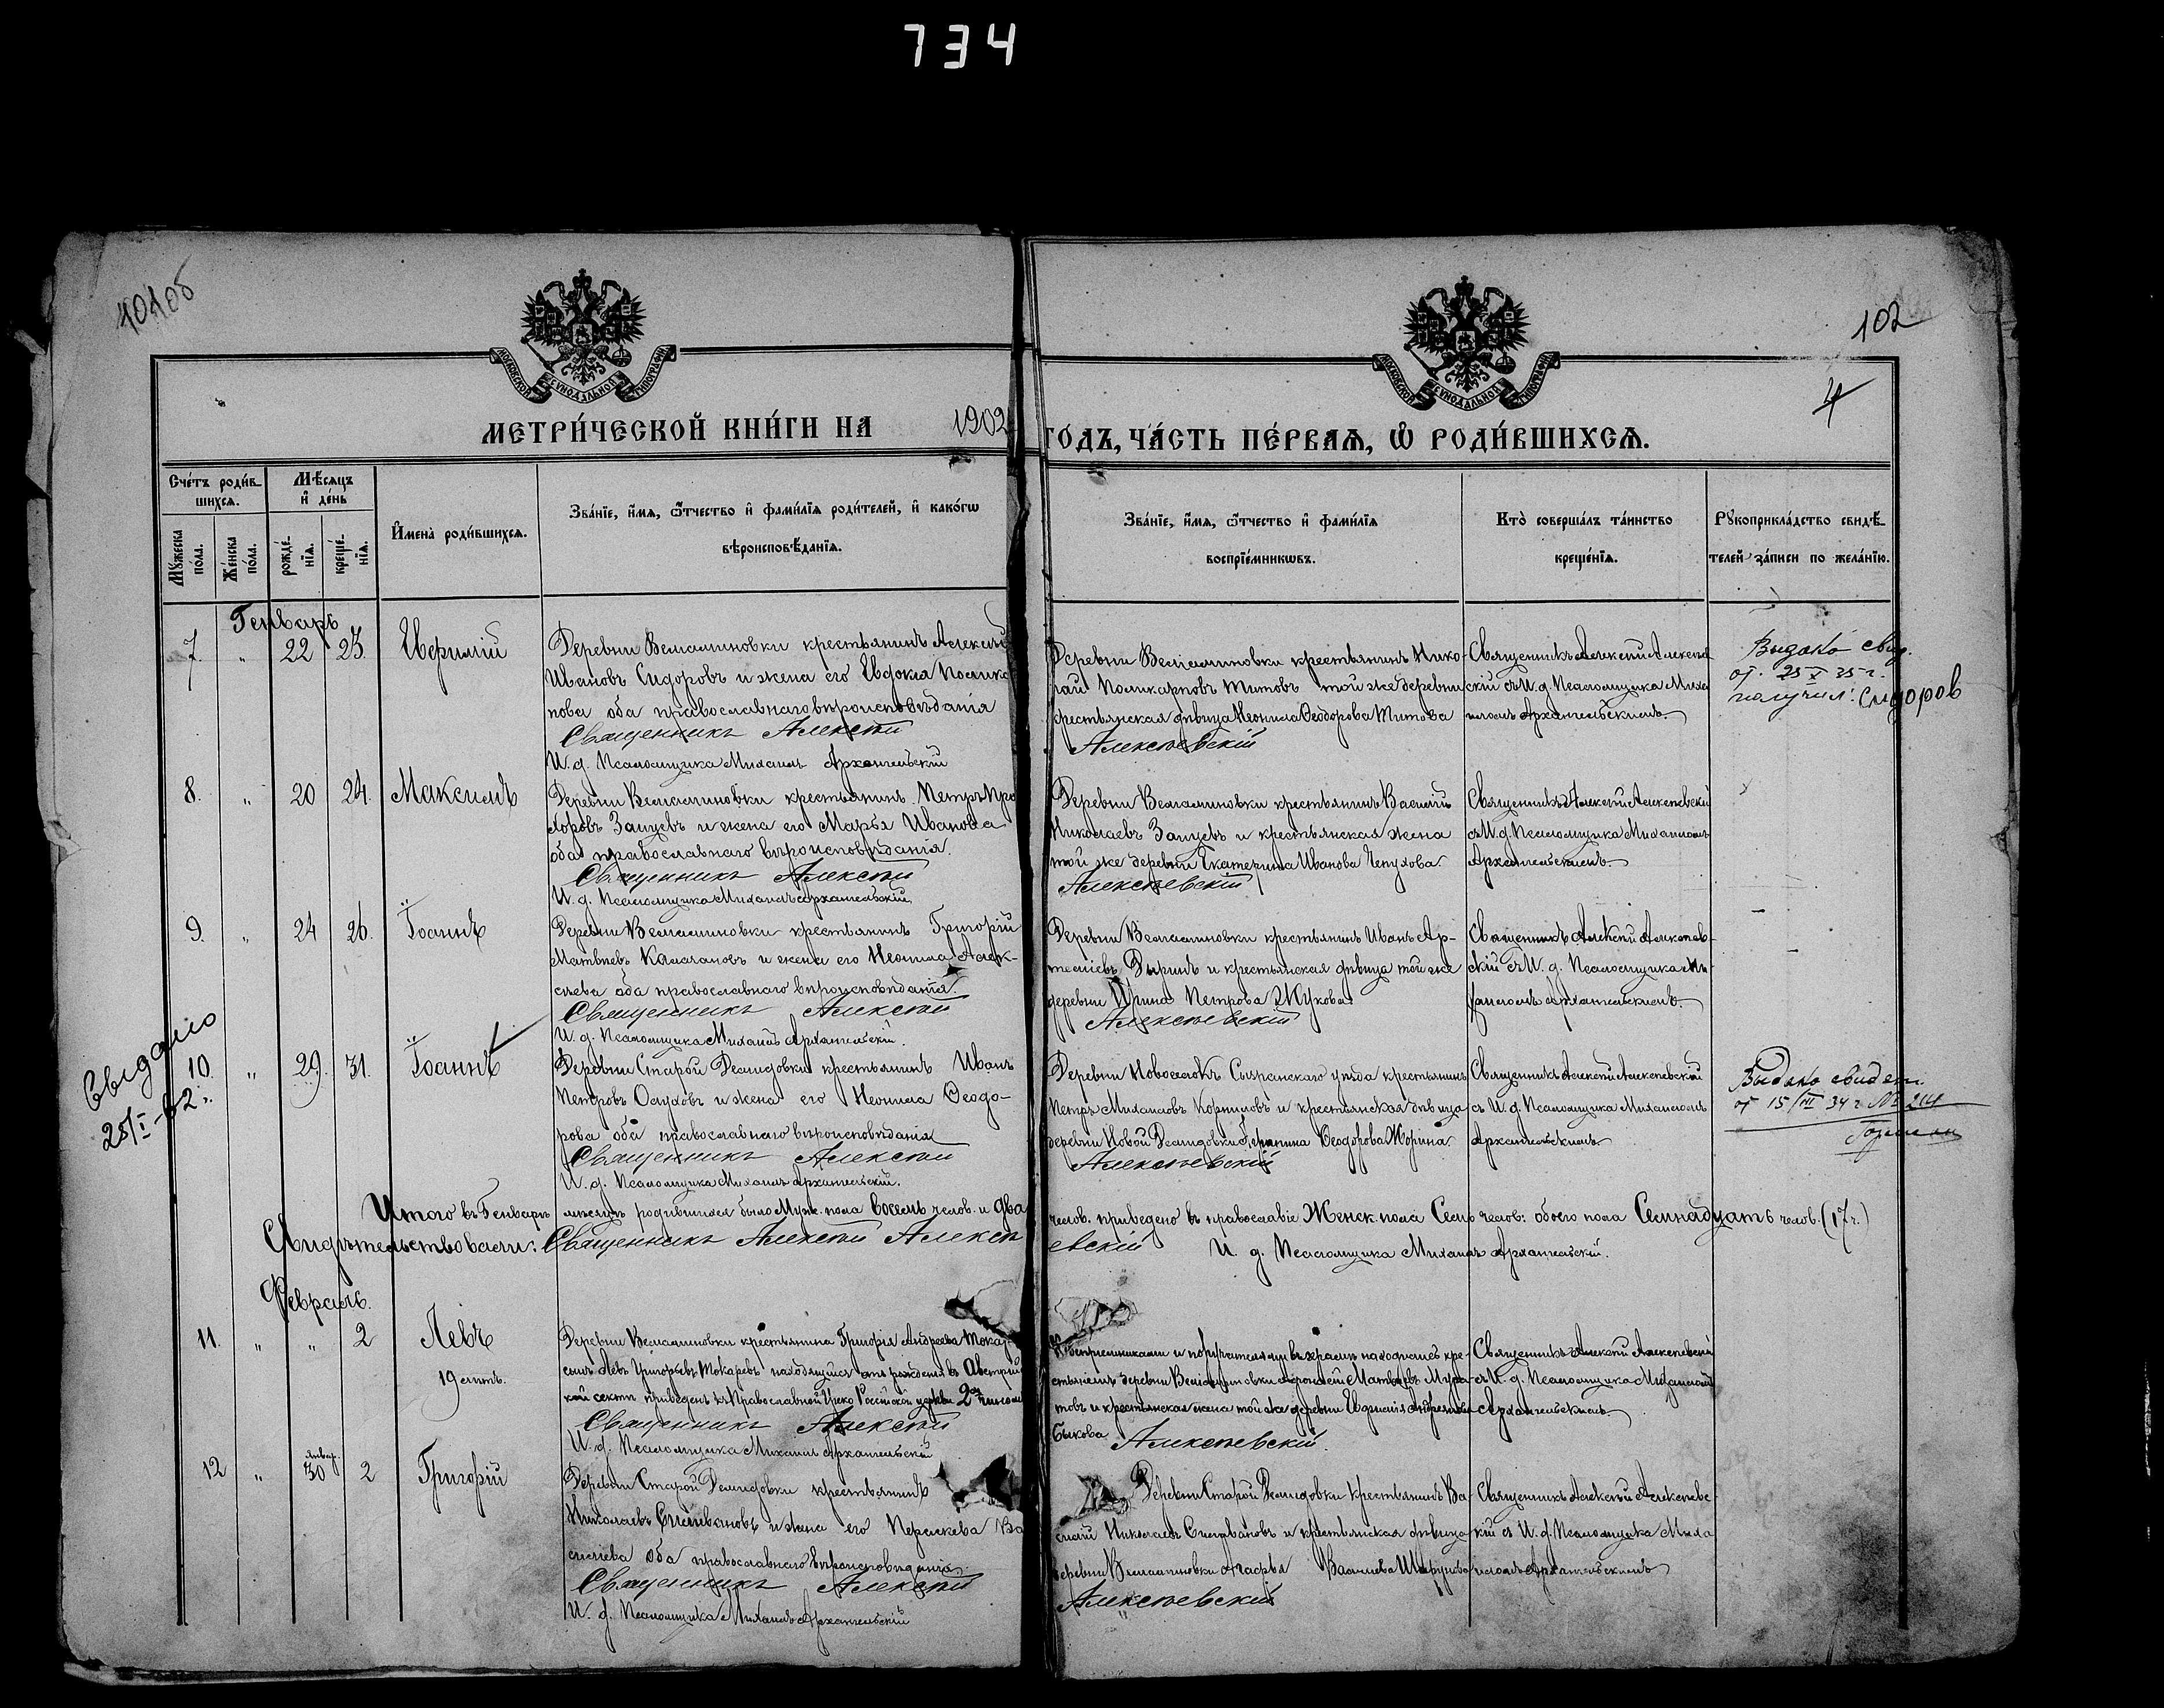 734
102
4
МОСКОВСКОЙ СУНОДАЛЬНОЙ ТИПОГРАФІИ
МОСКОВСКОЙ СУНОДАЛЬНОЙ ТИПОГРАФІИ
МЕТРИ́ЧЕСКОЙ КНИ́ГИ НА 1902 ГО́ДЪ, ЧА́СТЬ ПЕ́РВАѦ, Ѡ҆ РОДИ́ВШИХСѦ.
Сче́тъ роди́в-
шихсѧ.
Мꙋжеска по́ла.
Же́нска по́ла.
Мѣ́сѧцъ
и҆ де́нь
рожде́-нїѧ.
креще́-нїѧ.
И҆мена̀ роди́вшихсѧ.
Зва́нїе, и҆́мѧ, ѻ҆́тчество и҆ фами́лїѧ роди́телей, и҆ како́гѡ
вѣроисповѣ́данїѧ.
Зва́нїе, и҆́мѧ, ѻ҆́тчество и҆ фами́лїѧ
воспрїе́мникѡвъ.
Кто̀ соверша́лъ та́инство
креще́нїѧ.
Рꙋкоприкла́дство свидѣ́-
телей за́писи по жела́нїю.
Генварь
7. " 22 23. Евфимій
Деревни Вельяминовки крестьянинъ Алексѣй
Ивановъ Сидоровъ и жена его Евдокія Поликар
пова оба православнаго вѣроисповѣданія
Священникъ Алексѣй
И. д. Псаломщика Михаилъ Архангельскій
Деревни Вельяминовки крестьянинъ Нико-
лай Поликарповъ Титовъ той же деревни
крестьянская дѣвица Неонила Ѳеодорова Титова
Алексѣевскій
Священникъ Алексѣй Алексѣев
скій съ И. д. Псаломщика Миха
иломъ Архангельскимъ.
Выдано свид.
от 25 X 35 г.
получил: Сидоров
8. " 20 24. Максимъ
Деревни Вельяминовки крестьянинъ Петръ Про
хоровъ Зайцевъ и жена его Марѳа Иванова
оба православнаго вѣроисповѣданія.
Священникъ Алексѣй
И. д. Псаломщика Михаилъ Архангельскій
Деревни Вельяминовки крестьянинъ Василій
Николаевъ Зайцевъ и крестьянская жена
той же деревни Екатерина Иванова Чепухова.
Алексѣевскій
Священникъ Алексѣй Алексѣевскій
съ И. д. Псаломщика Михаиломъ
Архангельскимъ.
9. " 24 26. Іоаннъ
Деревни Вельяминовки крестьянинъ Григорій
Матвѣевъ и жена его Неонила Алек-
сѣева оба православнаго вѣроисповѣданія.
Священникъ Алексѣй
И. д. Псаломщика Михаилъ Архангельскій.
Деревни Вельяминовки крестьянинъ Иванъ Ар-
темьевъ и крестьянская дѣвица той же
деревни Ирина Петрова Жукова
Алексѣевскій
Священникъ Алексѣй Алексѣев-
скій съ И. д. Псаломщика Ми-
хаиломъ Архангельскимъ.
Выдано
25/I-62 г.
10. " 29. 31. Іоаннъ
Деревни Старой Демидовки крестьянинъ Иванъ
Петровъ и жена его Неонила Ѳеодо-
рова оба православнаго вѣроисповѣданія
Священникъ Алексѣй
И. д. Псаломщика Михаилъ Архангельскій.
Деревни Новоселокъ Сызранскаго уѣзда крестьянинъ
Петръ Михаиловъ Корниловъ и крестьянская дѣвица
деревни Новой Демидовки Ѳеодорова Жорина
Алексѣевскій
Священникъ Алексѣй Алексѣевскій
съ И. д. Псаломщика Михаиломъ
Архангельскимъ
Выдано свидет.
от 15/III 34 г. №
Итого въ Генварѣ мѣсяцѣ родившихся было Муж. пола восемь челов. и два челов. приведено въ православіе Женск. пола Семь челов: обоего пола Семнадцать челов. (17 ч.)
Свидѣтельствовали: Священникъ Алексѣй Алексѣевскій И. д. Псаломщика Михаилъ Архангельскій.
Февраль.
11. " " 2 Левъ
19 лѣтъ.
Деревни Вельяминовки крестьянина Григорія Андреева Токар
сынъ Левъ Григорьевъ Токаревъ находящійся отъ рожденія въ Австрій
кой сектѣ приведенъ къ Православной Греко Россійской церкви 2мъ чиномъ
Священникъ Алексѣй
И. д. Псаломщика Михаилъ Архангельскій
Воспріемниками и поручателями въ храмѣ находились кре-
стьянинъ деревни Вельяминовки Матвѣевъ Мура-
товъ и крестьянская жена той же деревни Евфимія Андреянова
Быкова
Алексѣевскій.
Священникъ Алексѣй Алексѣевскій
съ И. д. Псаломщика Михаиломъ
Архангельскимъ.
12 " январ. 30 2 Григорій
Деревни Старой Демидовки крестьянинъ
Николаевъ Сильвановъ и жена его Параскева Ва
сильева оба православнаго вѣроисповѣданія.
Священникъ Алексѣй
И. д. Псаломщика Михаилъ Архангельскій
Деревни Старой Демидовки крестьянинъ Ва-
силій Николаевъ Сильвановъ и крестьянская дѣвица
деревни Вельяминовки Васильева
Алексѣевскій
Священникъ Алексѣй Алексѣевс-
кій съ И. д. Псаломщика Миха
иломъ Архангельскимъ